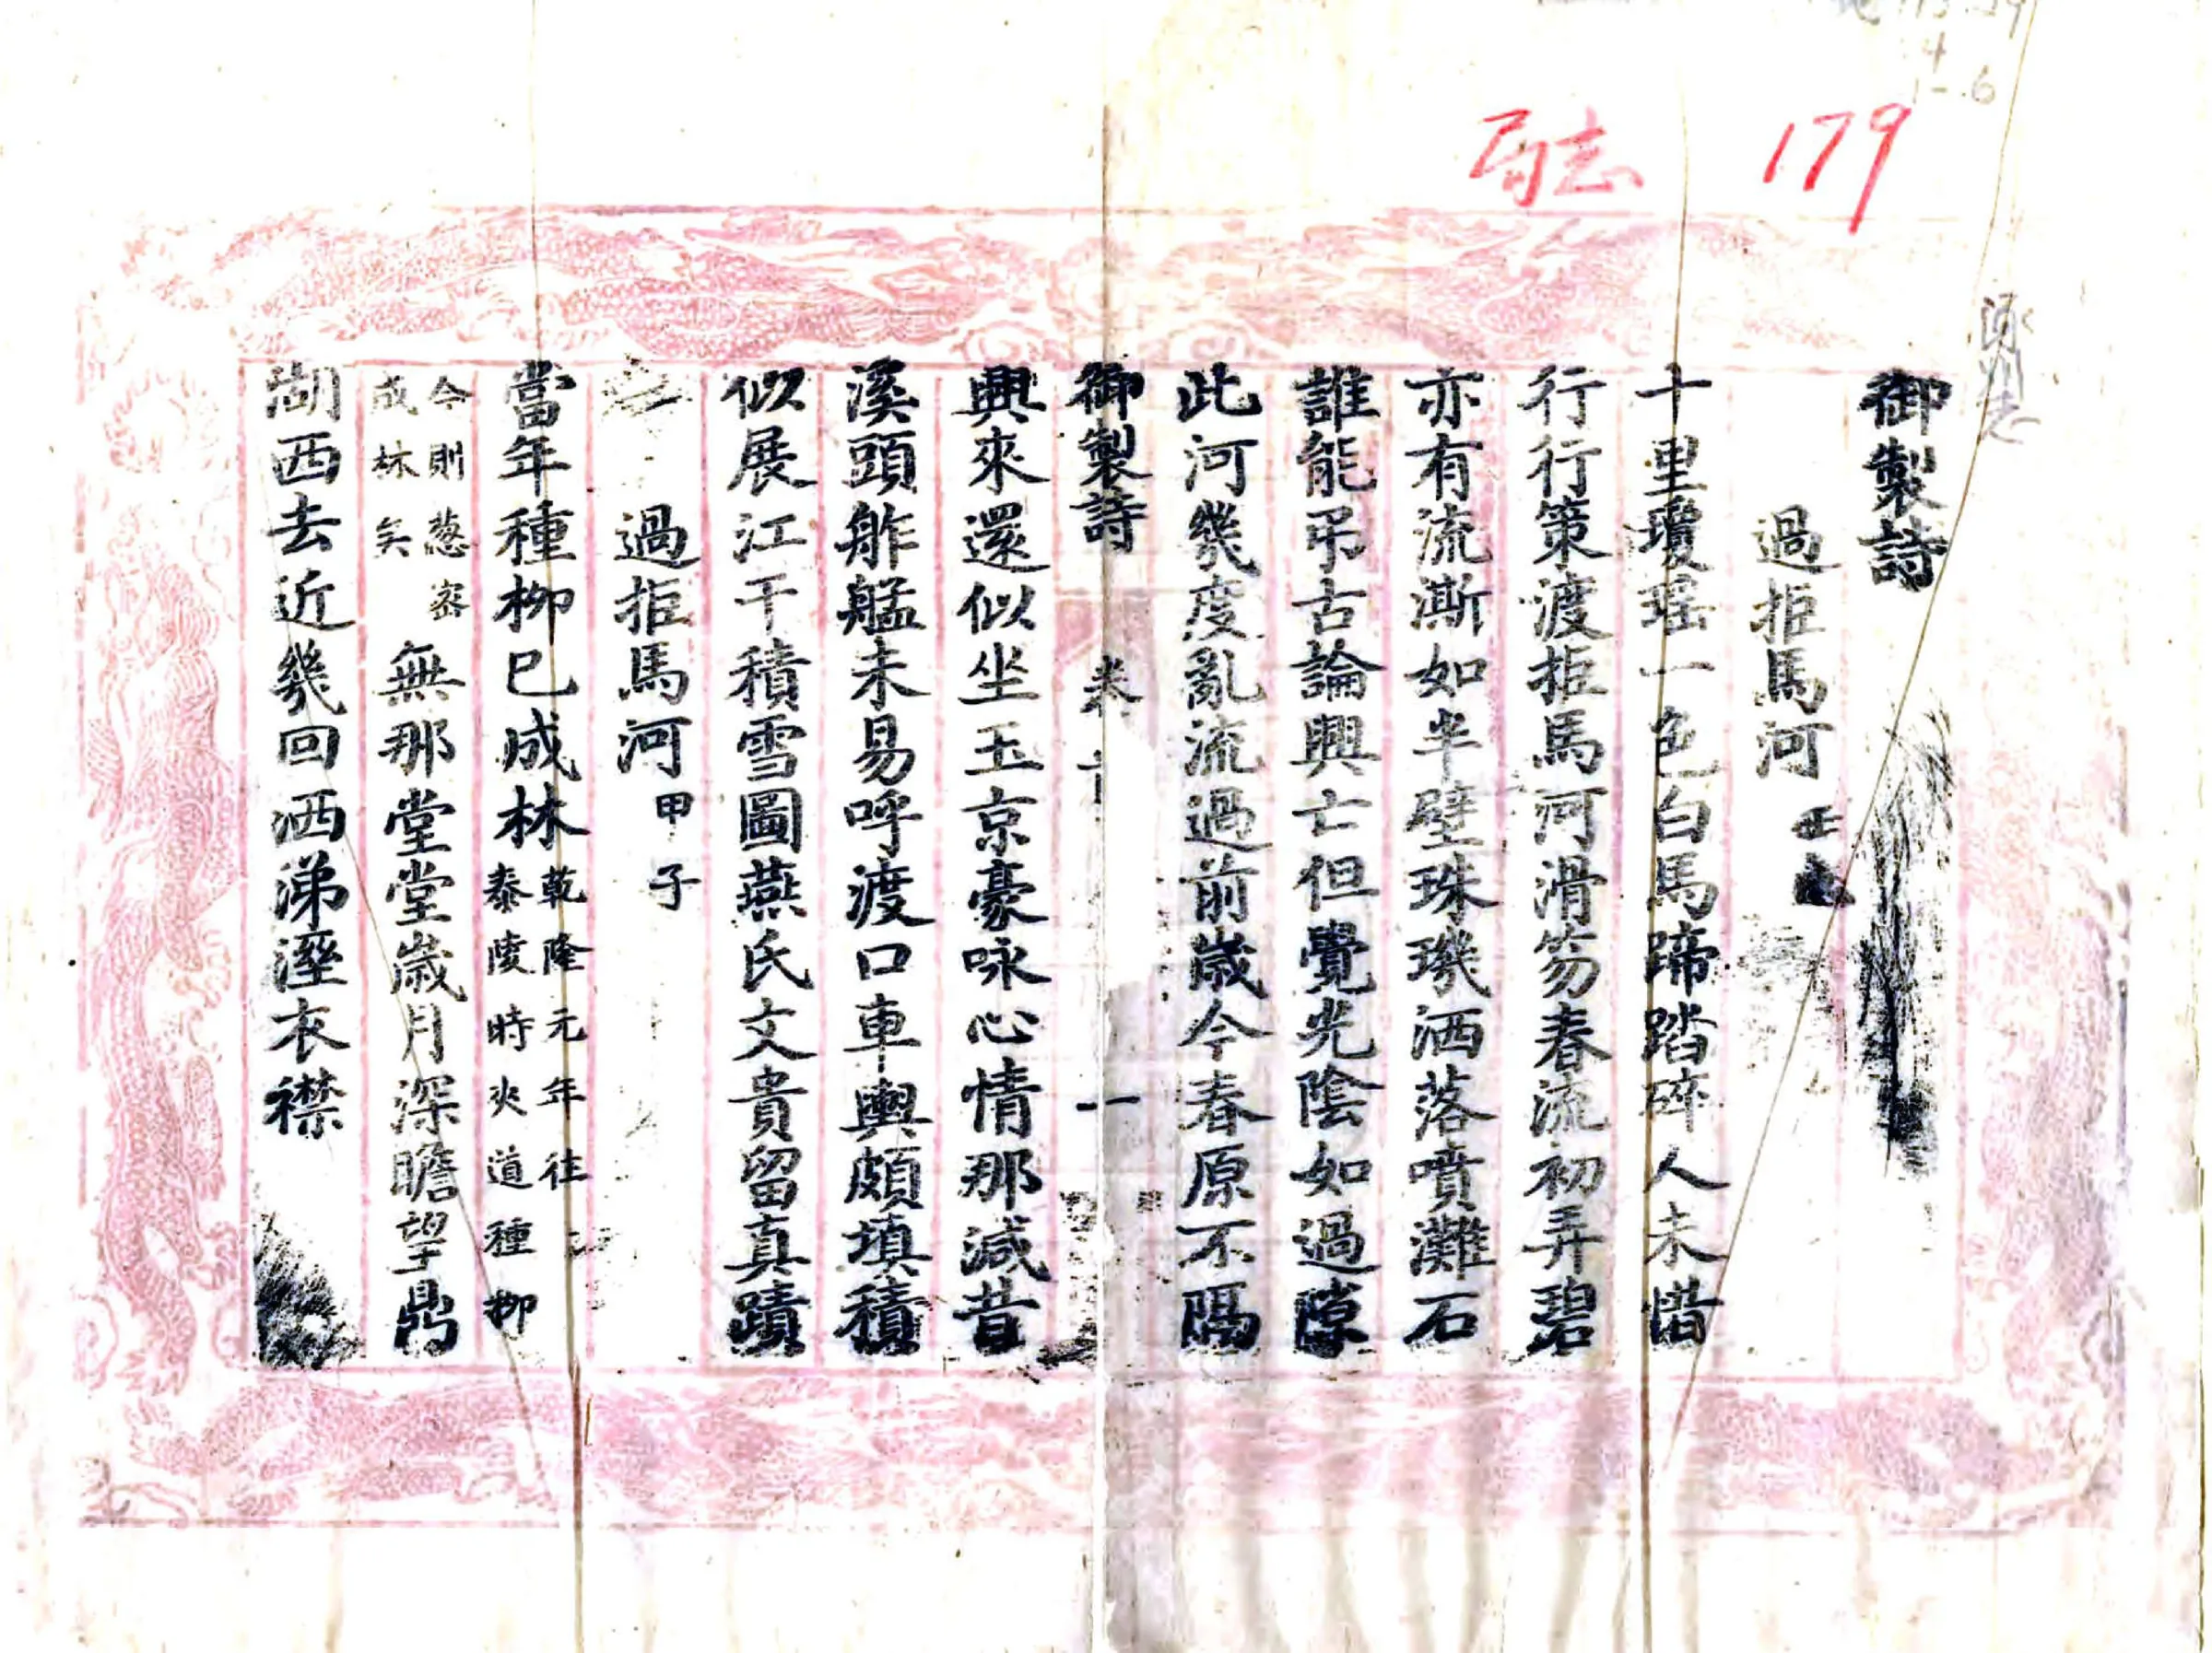 179
局志
涿州志
御製詩
過拒馬河
十里瓊瑶一色白馬蹄踏碎人未惜
行行策渡拒馬河滑笏春流初弄碧
亦有流澌如半璧珠璣洒落噴灘石
誰能弔古論興亡但覺光陰如過隙
此河幾度亂流過前歲今春原不隔
御製詩 卷首 一
興來還似坐玉京豪咏心情那減昔
溪頭舴艋未易呼渡口車輿頗填積
似展江干積雪圖燕氏文貴留真蹟
過拒馬河甲子
當年種柳已成林乾隆元年往
泰陵時夾道種柳
今則葱密
成林矣無那堂堂歲月深瞻望鼎
湖西去近幾回洒涕溼衣襟